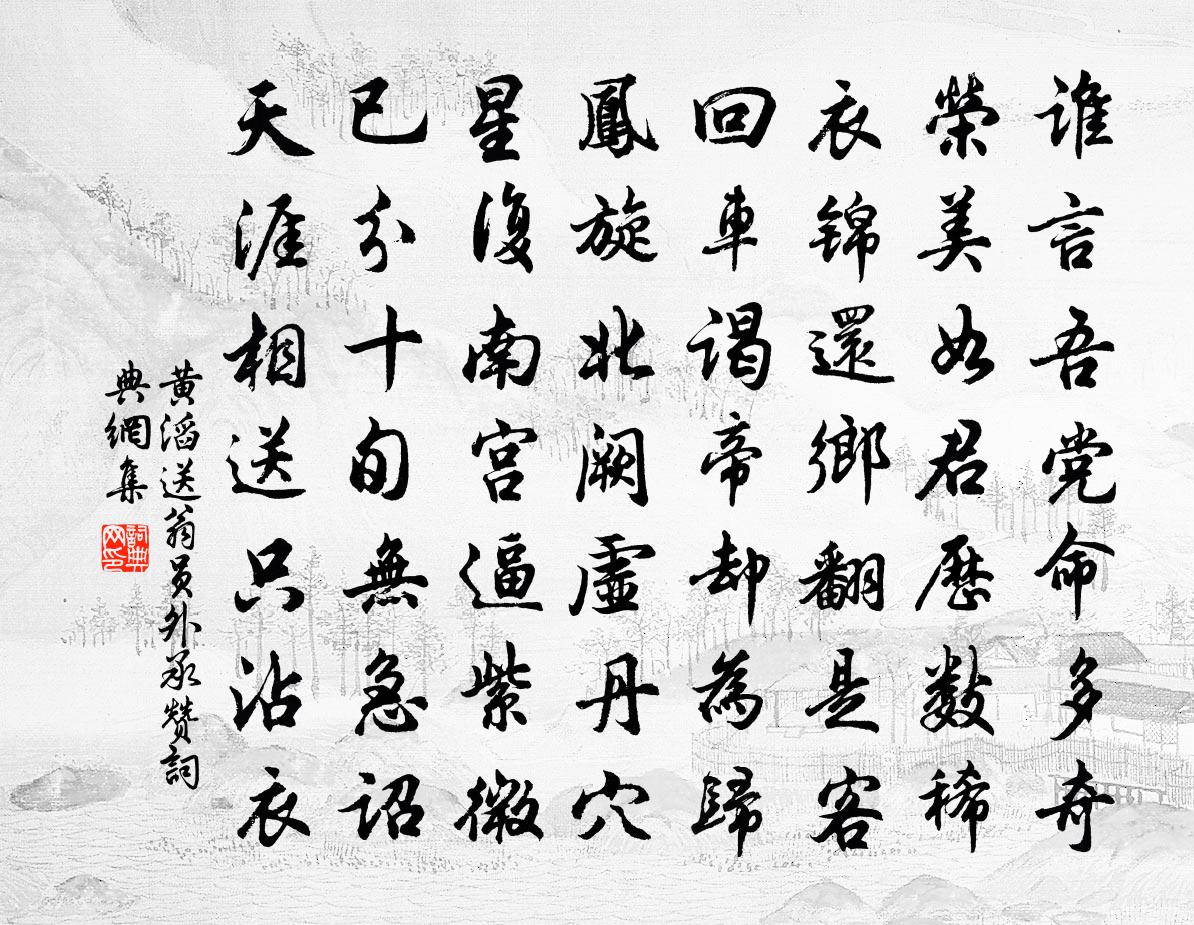 谁言吾党命多奇
榮美如君歷數稀
衣锦還鄉翻是客
回車谒帝却為歸
鳳旋北阙虛丹穴
星復南宮逼紫微
已分十旬無急诏
天涯相送只沾衣
黄滔送翁員外承赞詞
典網集
詞典
网印